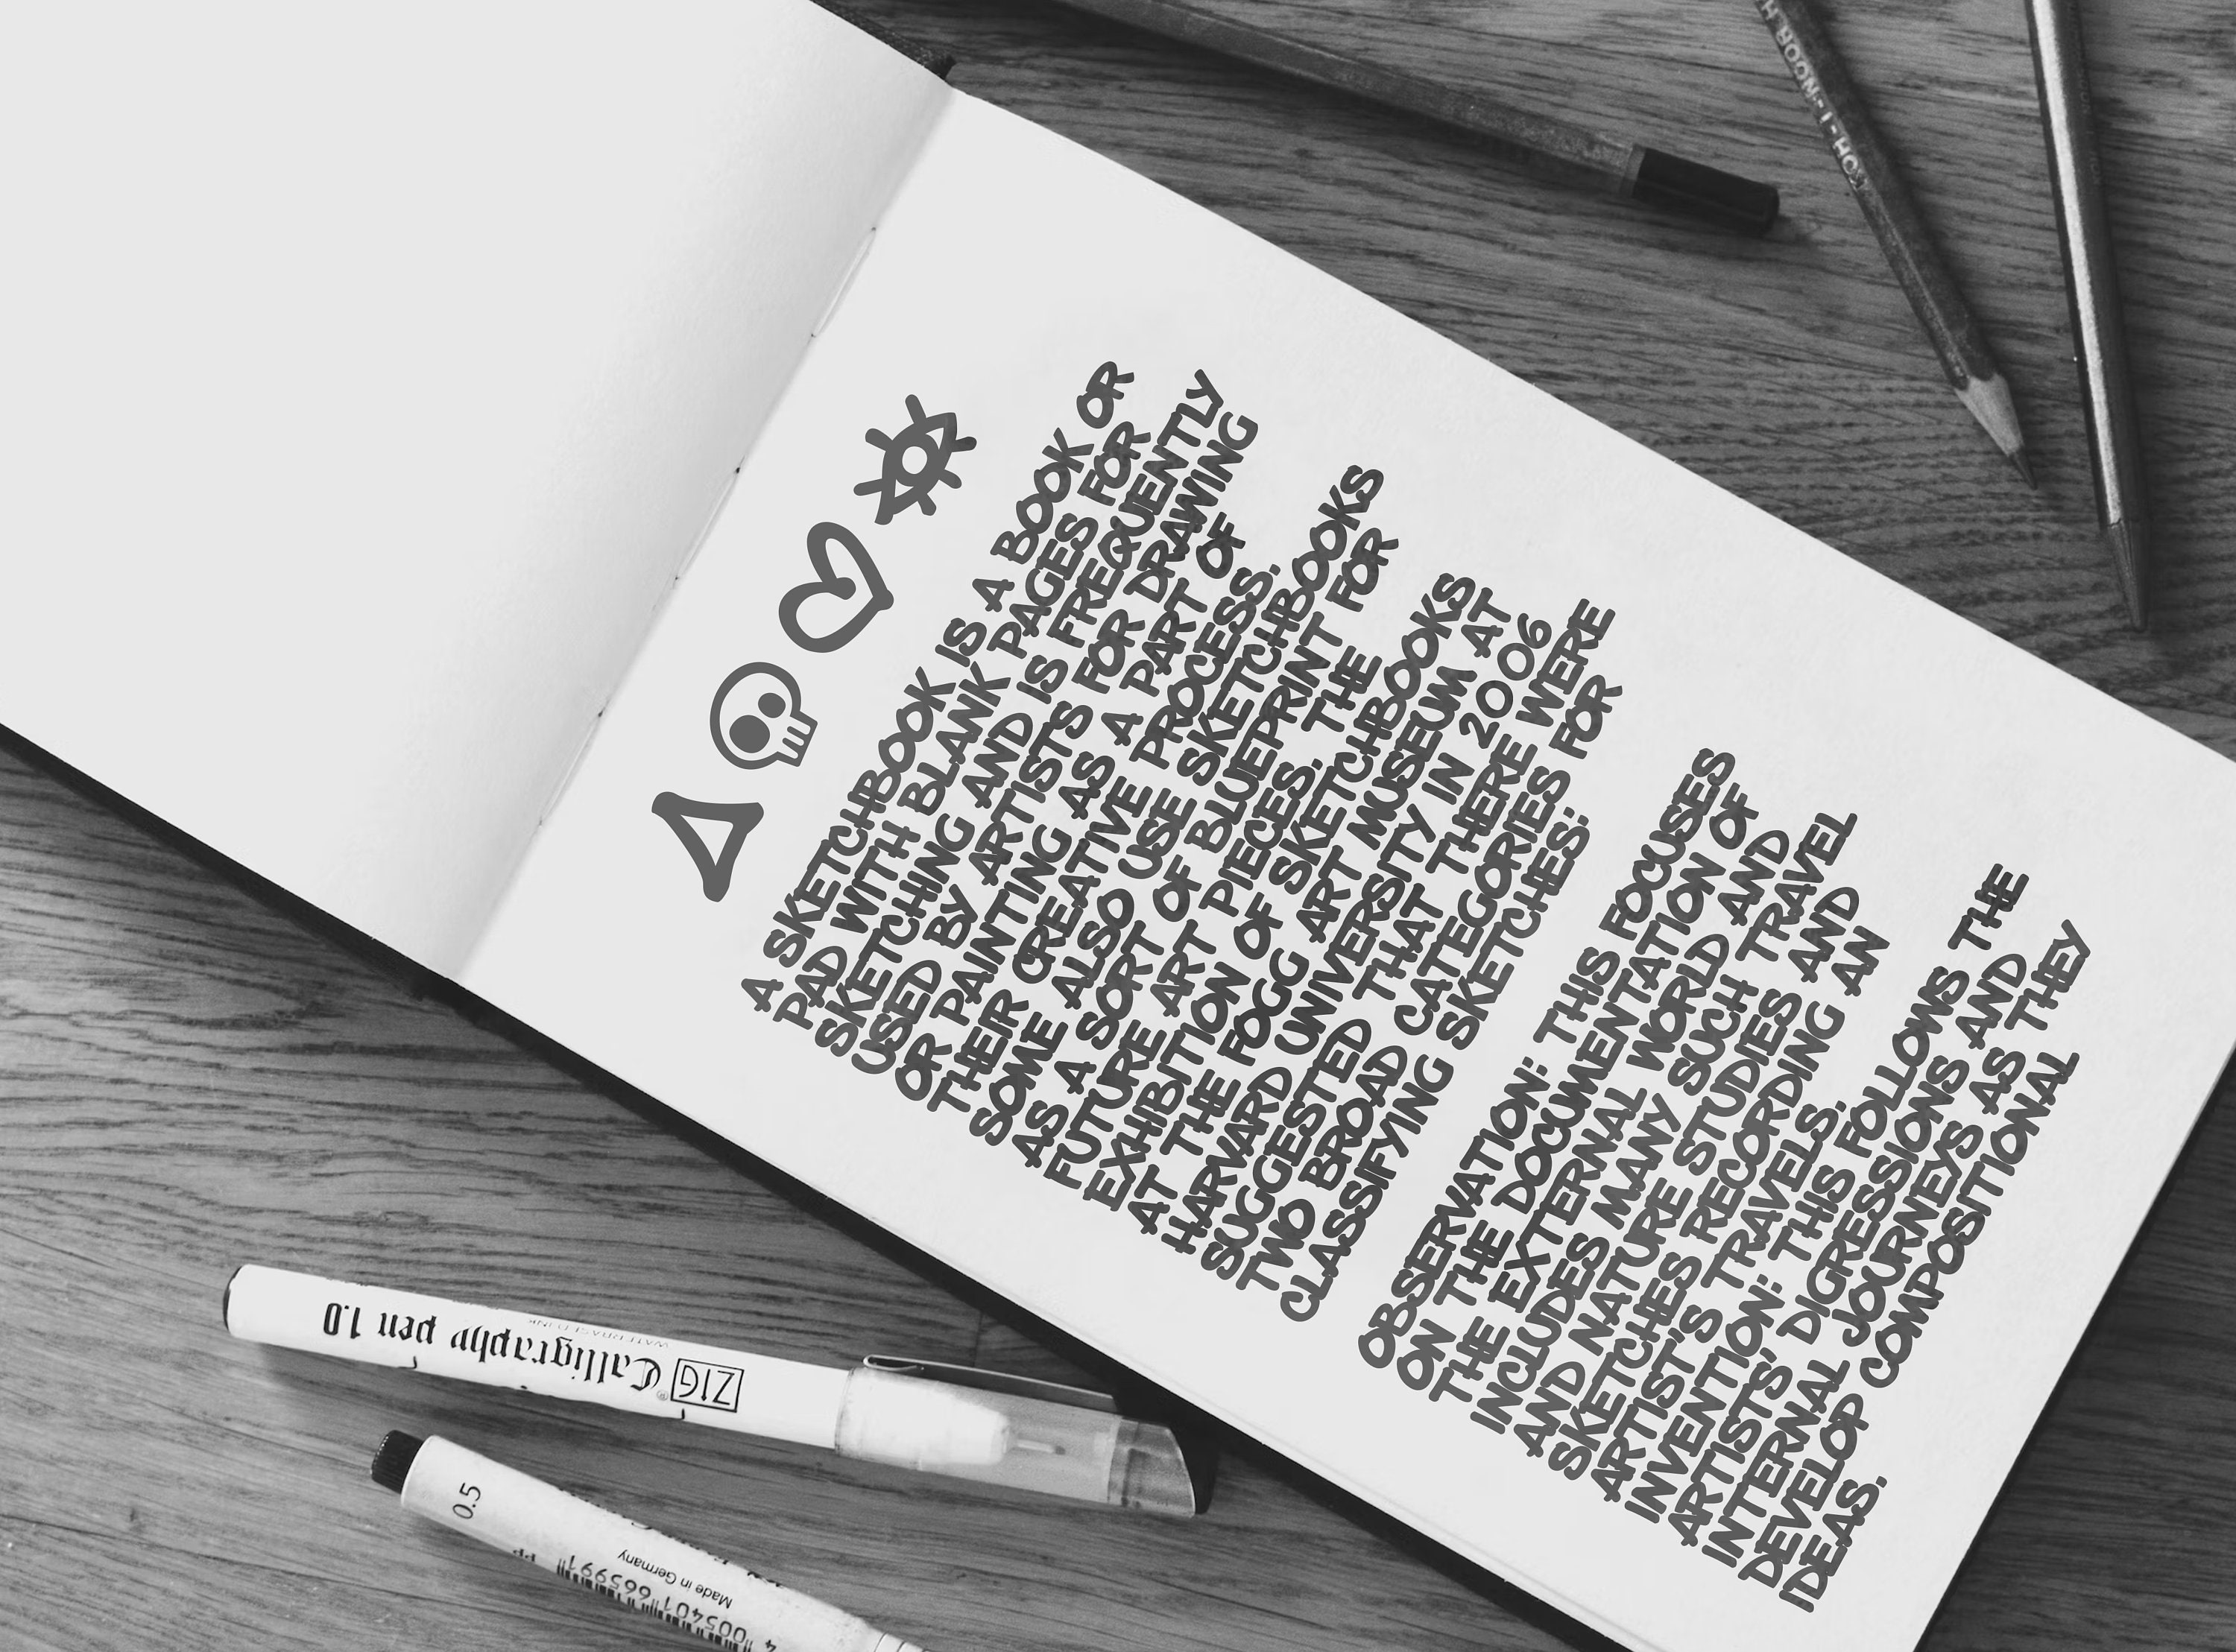 A SKETCHBOOK IS A BOOK OR
PAD WITH BLANK PAGES FOR
SKETCHING AND IS FREQUENTLY
USED BY ARTISTS FOR DRAWING
OR PAINTING AS A PART OF
THEIR CREATIVE PROCESS.
SOME ALSO USE SKETCHBOOKS
AS A SORT OF BLUEPRINT FOR
FUTURE ART PIECES. THE
EXHIBITION OF SKETCHBOOKS
AT THE FOGG ART MUSEUM AT
HARVARD UNIVERSITY IN 2006
SUGGESTED THAT THERE WERE
TWO BROAD CATEGORIES FOR
CLASSIFYING SKETCHES:
OBSERVATION: THIS FOCUSES
ON THE DOCUMENTATION OF
THE EXTERNAL WORLD AND
INCLUDES MANY SUCH TRAVEL
AND NATURE STUDIES AND
SKETCHES RECORDING AN
ARTIST'S TRAVELS.
INVENTION: THIS FOLLOWS THE
ARTISTS' DIGRESSIONS AND
INTERNAL JOURNEYS AS THEY
DEVELOP COMPOSITIONAL
IDEAS.
KOH-I-NOOR H
ZIG Calligraphy pen 1.0
WATERBASED INK
0.5
Made in Germany
4 005401 665991